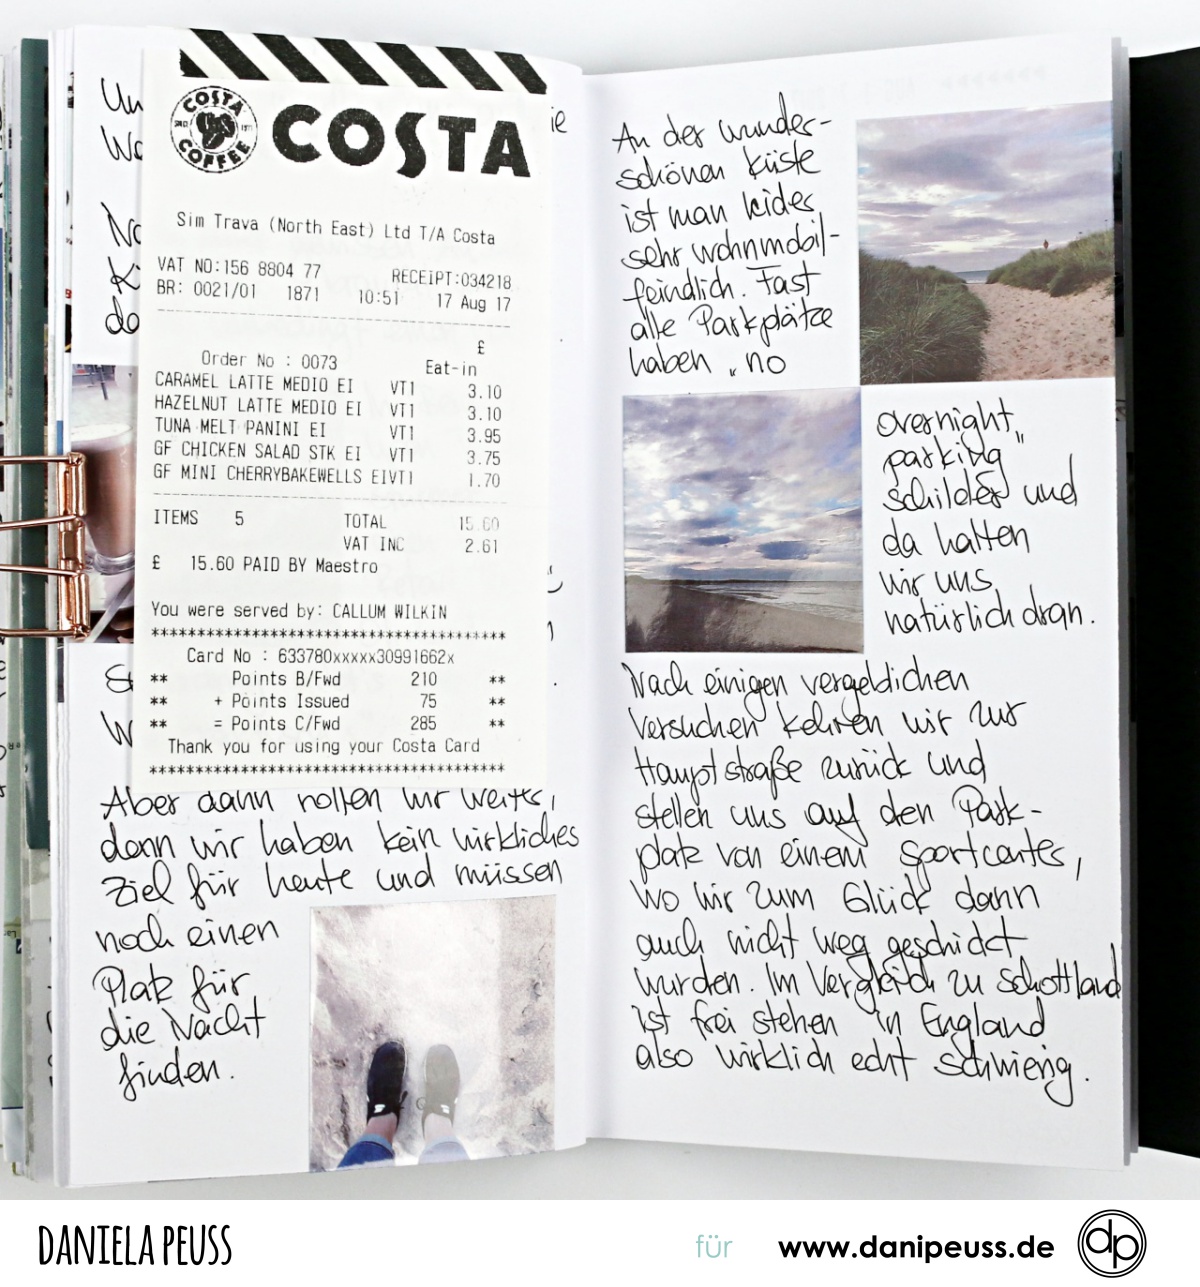 Un
ie
Wo
No
Ki
da
COSTA
COFFEE
COSTA
Sim Trava (North East) Ltd T/A Costa
VAT NO:156 8804 77 RECEIPT:034218
BR: 0021/01 1871 10:51 17 Aug 17
£
Order No : 0073 Eat-in
CARAMEL LATTE MEDIO EI VT1 3.10
HAZELNUT LATTE MEDIO EI VT1 3.10
TUNA MELT PANINI EI VT1 3.95
GF CHICKEN SALAD STK EI VT1 3.75
GF MINI CHERRYBAKEWELLS EIVT1 1.70
ITEMS 5 TOTAL 15.60
VAT INC 2.61
£ 15.60 PAID BY Maestro
You were served by: CALLUM WILKIN
************************************
Card No : 633780xxxxx30991662x
** Points B/Fwd 210 **
** + Points Issued 75 **
** = Points C/Fwd 285 **
Thank you for using your Costa Card
************************************
St
W
Aber dann rollen wir weiter,
denn wir haben kein wirkliches
Ziel für heute und müssen
noch einen
Platz für
die Nacht
finden.
An der wunder-
schönen Küste
ist man leider
sehr wohnmobil-
feindlich. Fast
alle Parkplätze
haben „no
overnight
parking"
schilder und
da halten
wir uns
natürlich dran.
Nach einigen vergeblichen
Versuchen kehren wir zur
Hauptstraße zurück und
stellen uns auf den Park-
platz von einem Sportcenter,
wo wir zum Glück dann
auch nicht weg geschickt
wurden. Im Vergleich zu Schottland
ist frei stehen in England
also wirklich echt schwierig.
DANIELA PEUSS für www.danipeuss.de dp